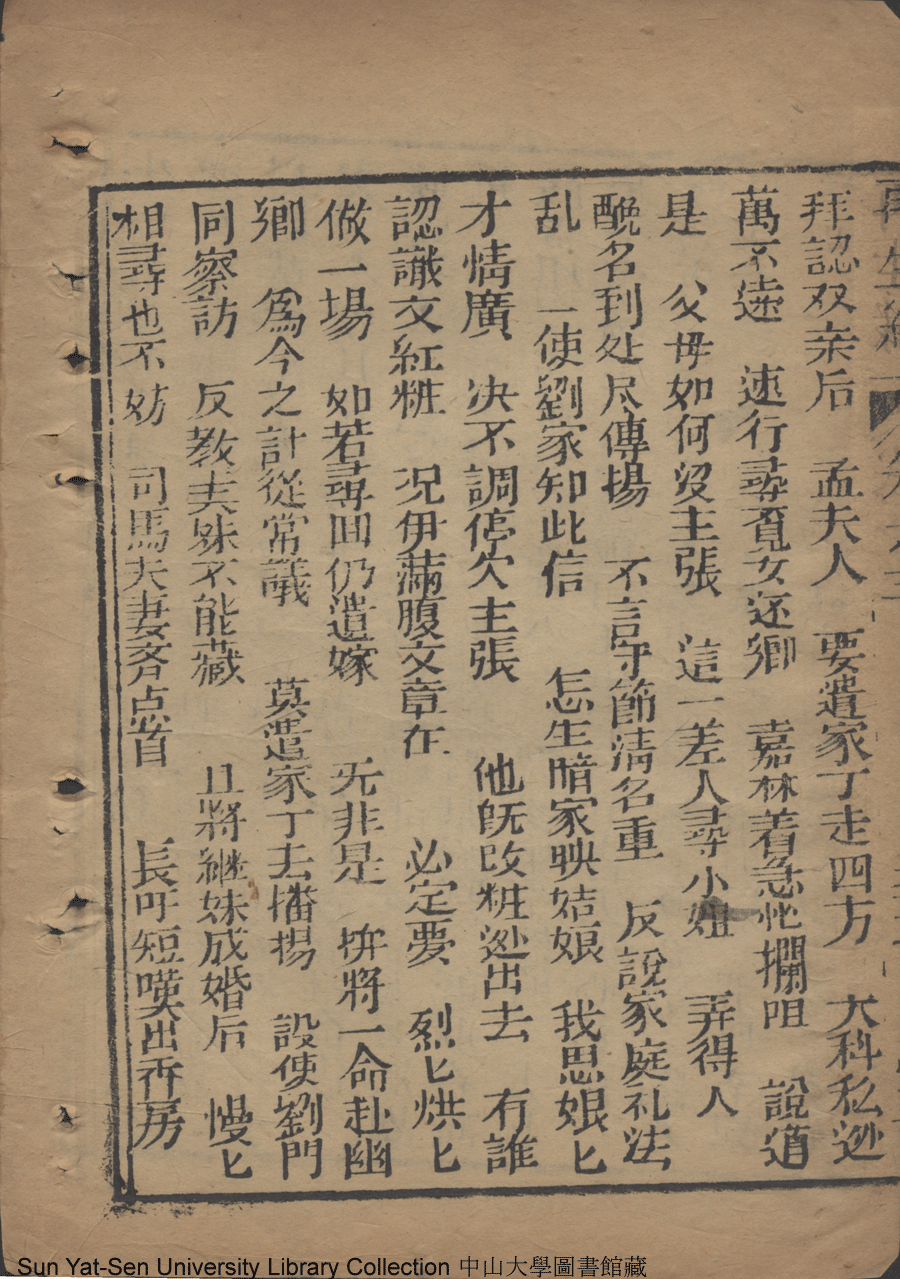 再生緣
拜認双亲后　孟夫人　要遣家丁走四方　大科私逊
萬不远　速行尋覓女还鄉　嘉林着急忙攔咀　說道
是　父母如何没主張　這一差人尋小姐　弄得人
醜名到处尽傳揚　不言守節清名重　反說家庭礼法
乱　一使劉家知此信　怎生瞒家映姑娘　我思娘匕
才情廣　决不調停欠主張　他既改粧逊出去　冇誰
認識文紅粧　况伊滿腹文章在　必定要　烈匕烘匕
做一場　如若尋囬仍遣嫁　旡非是　拚將一命赴幽
鄉　爲今之計從常議　莫遣家丁去播揚　設使劉門
同察訪　反教夫妹不能藏　且將継妹成婚后　慢匕
相尋也不妨　司馬夫妻斉点首　長吁短嘆出香房
Sun Yat-Sen University Library Collection 中山大學圖書館藏